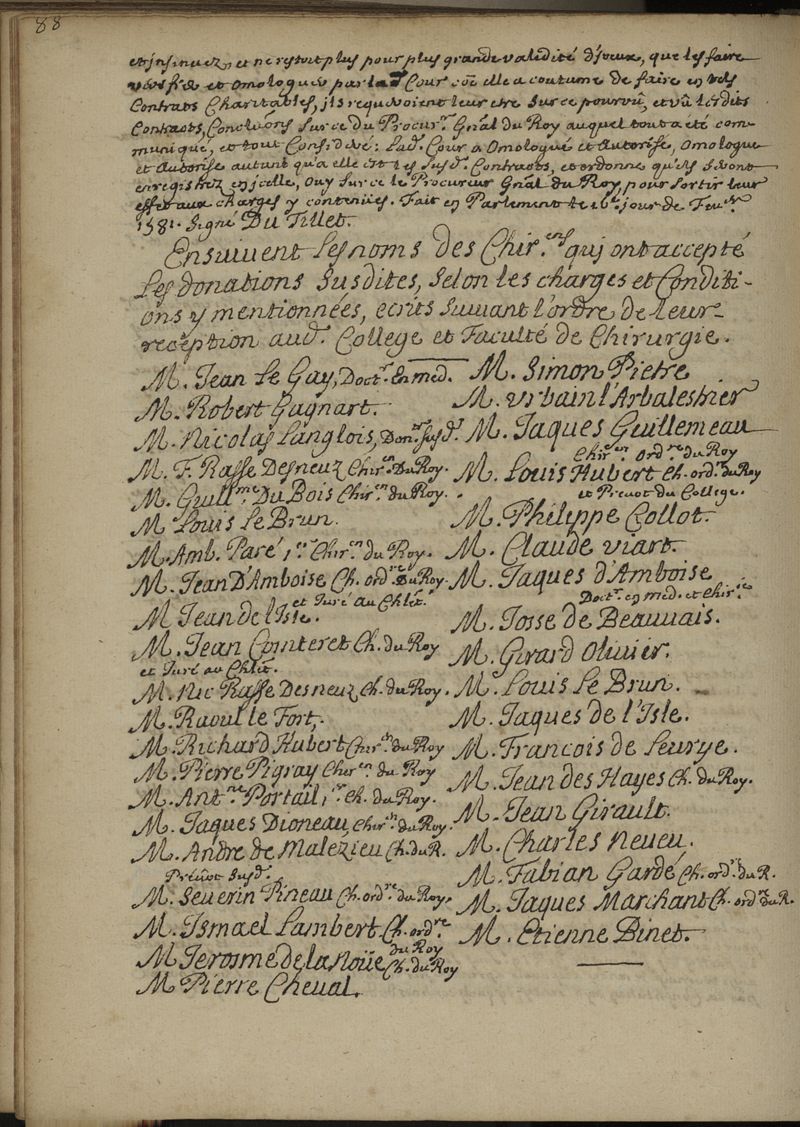 88
et insinuez, et ne restoit plus pour plus grande validité d'iceux, que les faire
vérifier et omologuer par lad. Cour coe elle a coutume de faire en tels
Contrats Charitables, ils requeroient leur etre sur ce pourvû, et vû lesdits
Contrats, Conclusions sur ce du Procur.r Gnal du Roy auquel tout a été com-
muniqué, et tout Consideré: Lad. Cour a Omologué et Autorisé, Omologue
et Autorise autant qu'a elle est les susd. Contrasts, et ordonne qu'ils seront
enregistrez en icelle, Ouy sur ce le Procureur Gnal du Roy, pour sortir leur
effet aux charges y contenues. Fait en Parlement le 16e jour de
1581. Signé Du Tillet.
Ensuivent les noms des Chir.ens qui ont accepté
les donations susdites, selon les charges et Conditi-
ons y mentionnées, ecrits suivant l'ordre de leur
reception aud. College et Faculté de Chirurgie.
M. Jean le Gay, Doct.r en med.
M. Robert Gagnart.
M. Nicolas Langlois, Don.r susd.
M. F. Rasse Desneuz Chir.en Du Roy.
M. Guill.me Du Bois Chir.en du Roy.
M Louis le Brun.
M. Amb. Paré, 1.er Chir.en du Roy.
M. Jean D'Amboise Ch. ord.re Du Roy
et Juré au Chlet.
M Jean de l'Isle.
M. Jean Cointeret Ch. du Roy
et Juré au Chlet.
M. Nic Rasse Desneuz Ch. du Roy.
M. Raoul le Fort,
M. Richard Hubert Chir.en du Roy
M. Pierre Pigray Chir.en du Roy
M. Ant.ne Portail, 1.er Ch. du Roy.
M. Jaques Dioneau Chir.en du Roy.
M. André de Malezieu Ch. du R.
Prévot susd.
M. Severin Pineau Ch. ord.re du Roy.
M. Ismael Lambert Ch. ord.re
du Roy
M Jerosme de la Noüe Ch. du Roy
M Pierre Cheval.
M. Simon Pietre
M. Urbain l'Arbalestrier
M. Jaques Guillemeau
Chir.en ord.re du Roy
M. Louis Hubert Ch. ord.re du Roy
et Prevot du College.
M. Philippe Collot.
M. Claude Viart.
M. Jaques d'Amboise
Doct.r en med. et Chir.ie
M. Josse de Beauvais.
M. Girard Olivier.
M. Louis le Brun.
M. Jaques de l'Isle.
M. Francois de Leurye.
M. Jean des Hayes Ch. du Roy.
M. Jean Girault.
M. Charles Neveu.
M. Fabian Gardé Ch. ord.re du R.
M. Jaques Marchant Ch. ord.re du R.
M. Etienne Binet.